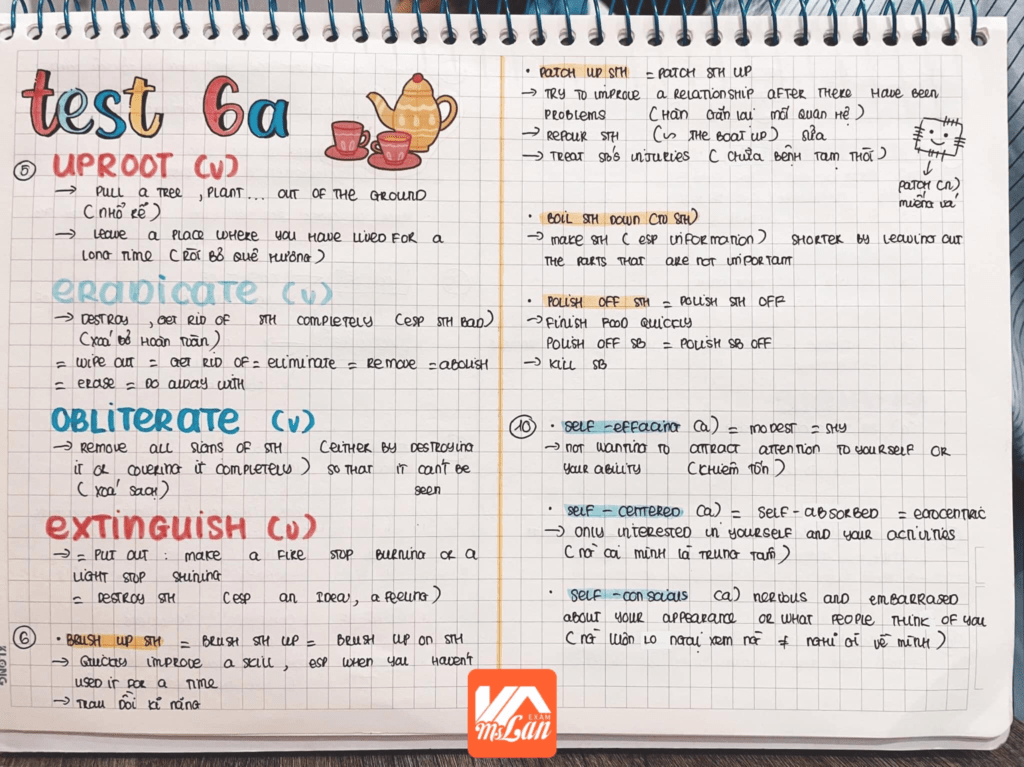 test 6a
⑤ UPROOT (v)
→ PULL A TREE, PLANT... OUT OF THE GROUND
(NHỔ RỄ)
→ LEAVE A PLACE WHERE YOU HAVE LIVED FOR A
LONG TIME (RỜI BỎ QUÊ HƯƠNG)
ERADICATE (v)
→ DESTROY, GET RID OF STH COMPLETELY (ESP STH BAD)
(XOÁ BỎ HOÀN TOÀN)
= WIPE OUT = GET RID OF = ELIMINATE = REMOVE = ABOLISH
= ERASE = DO AWAY WITH
OBLITERATE (v)
→ REMOVE ALL SIGNS OF STH (EITHER BY DESTROYING
IT OR COVERING IT COMPLETELY) SO THAT IT CAN'T BE
(XOÁ SẠCH) SEEN
EXTINGUISH (v)
→ = PUT OUT : MAKE A FIRE STOP BURNING OR A
LIGHT STOP SHINING
= DESTROY STH (ESP AN IDEA, A FEELING)
⑥ • BRUSH UP STH = BRUSH STH UP = BRUSH UP ON STH
→ QUICKLY IMPROVE A SKILL, ESP WHEN YOU HAVEN'T
USED IT FOR A TIME
→ TRAU DỒI KĨ NĂNG
• PATCH UP STH = PATCH STH UP
→ TRY TO IMPROVE A RELATIONSHIP AFTER THERE HAVE BEEN
PROBLEMS (HÀN GẮN LẠI MỐI QUAN HỆ)
→ REPAIR STH (VS THE BOAT UP) SỬA
→ TREAT SB'S INJURIES (CHỮA BỆNH TẠM THỜI)
PATCH (n)
MIẾNG VÁ
• BOIL STH DOWN (TO STH)
→ MAKE STH (ESP INFORMATION) SHORTER BY LEAVING OUT
THE PARTS THAT ARE NOT IMPORTANT
• POLISH OFF STH = POLISH STH OFF
→ FINISH FOOD QUICKLY
POLISH OFF SB = POLISH SB OFF
→ KILL SB
⑩ • SELF-EFFACING (a) = MODEST = SHY
→ NOT WANTING TO ATTRACT ATTENTION TO YOURSELF OR
YOUR ABILITY (KHIÊM TỐN)
• SELF-CENTERED (a) = SELF-ABSORBED = EGOCENTRIC
→ ONLY INTERESTED IN YOURSELF AND YOUR ACTIVITIES
(NÓ COI MÌNH LÀ TRUNG TÂM)
• SELF-CONSCIOUS (a) NERVOUS AND EMBARRASED
ABOUT YOUR APPEARANCE OR WHAT PEOPLE THINK OF YOU
(NÓ LUÔN LO NGẠI XEM NG ≠ NGHĨ GÌ VỀ MÌNH)
KLONG
EXAM
MsLan